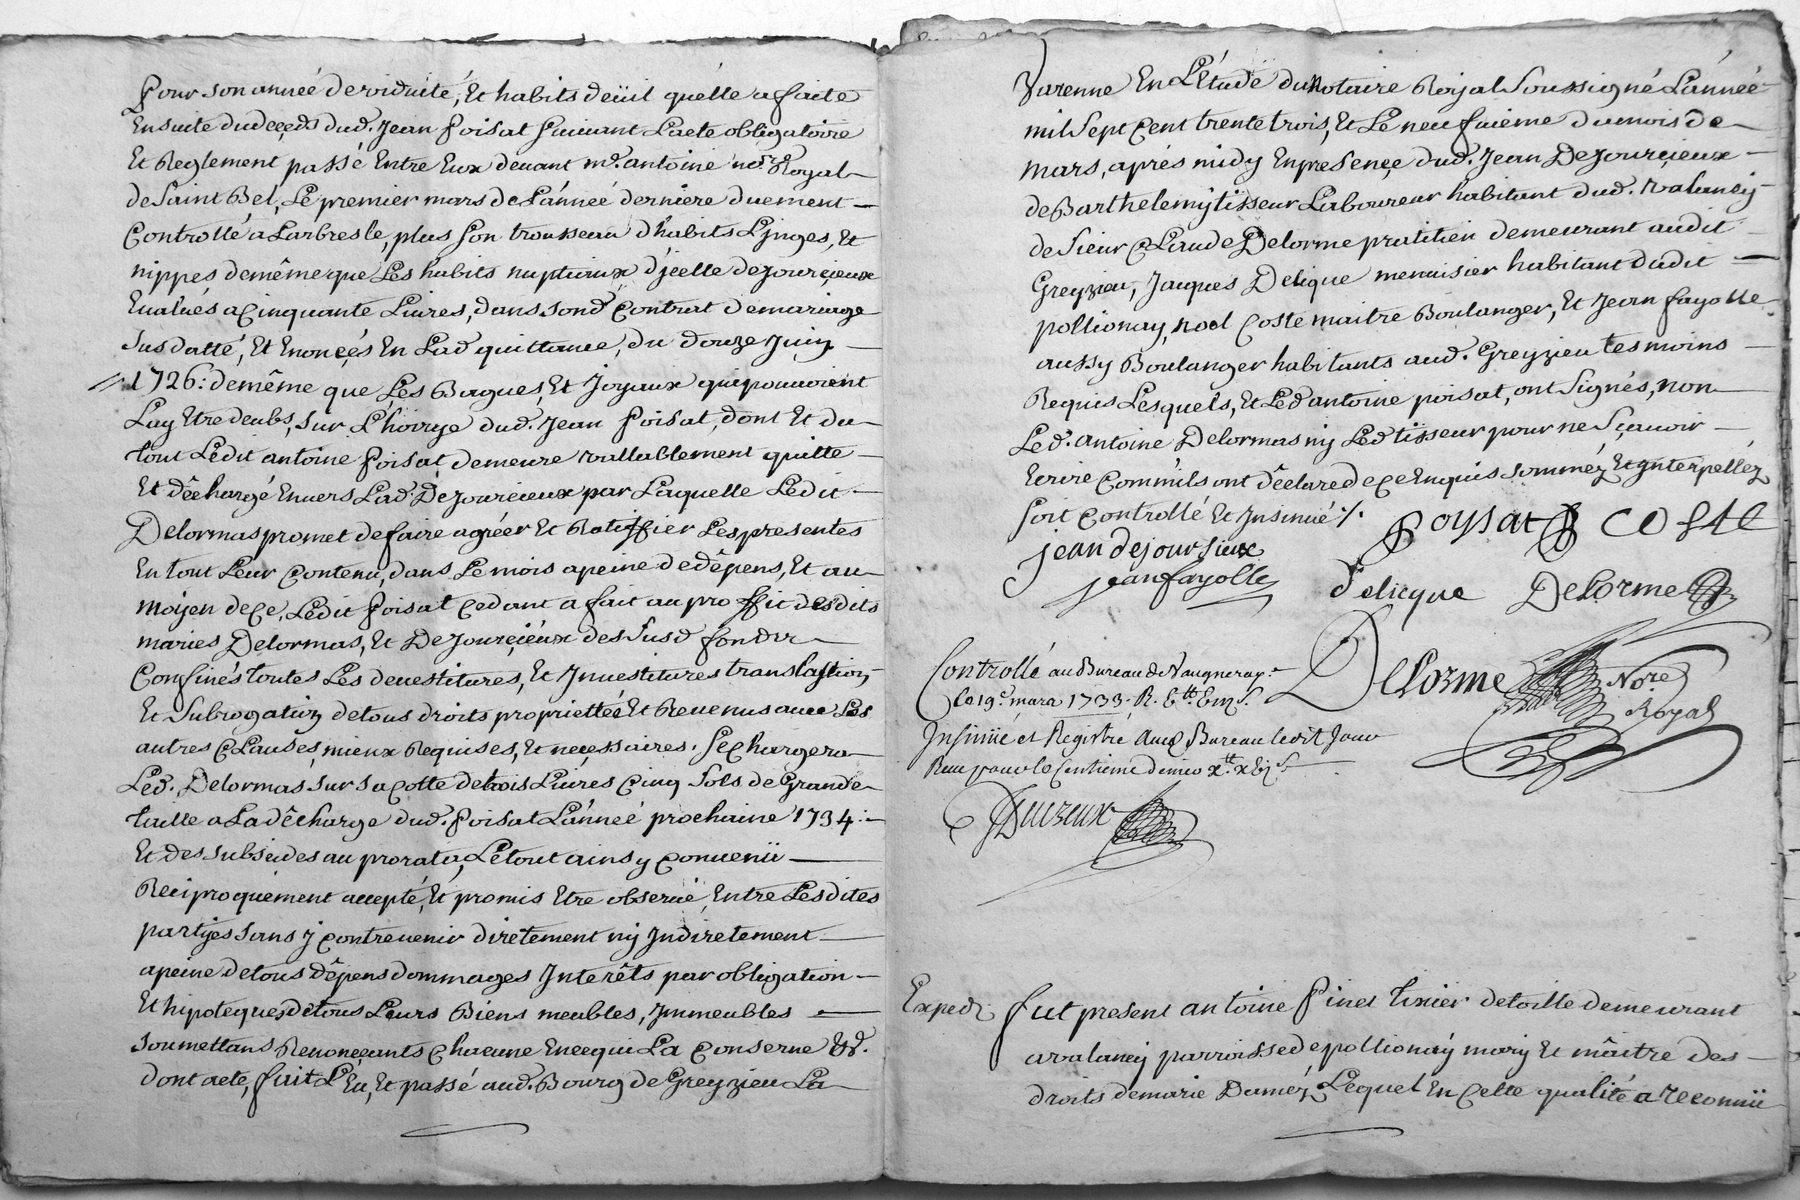 pour son année de viduité, Et habits deüil quélle a faite
Ensuite dudeçeds dud. Jean poisat suivant Lacte obligatoire
Et Reglement passé Entre Eux devant me. antoine nore. Royal
de Saint Bel, Le premier mars de Lánneé derniere duement
Controllé a Larbresle, plus son trousseau dhabits Linges, Et
nippes, demême que Les habits nuptiaux d'jcelle dejourçieux
Evalués a Cinquante Livres, dans sond. Contrat demariage
susdatté, Et Enonçés En Lad. quittance, du douze Juin
1726: demême que Les Bagues, Et Joyaux qui pouvoient
Luy Etre deubs, sur L'hoirye dud. Jean poisat, dont Et du
tout Ledit antoine poisat demeure vallablement quitte
Et déchargé Envers Lad. Dejourcieux par Laquelle Ledit
Delormas promet defaire agréer Et Ratiffier Les presentes
En tout Leur Contenu, dans Le mois apeine de dêpens, Et au
moyen de Ce, Ledit poisat Cedant a fait au proffit desdits
maries Delormas, Et Dejourçieux des susd. fonds
Confinés toutes Les devestitures, Et Jnvestitures translation
Et Subrogation detous droits proprietteé Et Revenus avec Les
autres Clauses, mieux Requises, Et necessaires. se chargera
Led. Delormas sur sa Cotte detrois Livres Cinq sols de Grande
taille a La dêcharge dud. poisat Lánneé prochaine 1734:
Et des subsides au prorata, Le tout ainsy Convenü
Reciproquement accepté, Et promis Etre observé, Entre Lesdites
partyes sans y Contrevenir diretement ny Jndiretement
apeine detous dêpens dommages Jnterêts par obligation
Et hipoteques detous Leurs Biens meubles, Jmmeubles
soumettans Renonçants Chacune Encequi La Conserne &d.
dont acte, fait L'Eu, Et passé aud. Bourg de Greyzieu La
Varenne En L'Étude du Notaire Royal soussigné Lánneé
mil sept Cent trente trois, Et Le neufuieme dumois de
mars, aprés midy Enpresençe dud. Jean Dejourçieux
de Barthelemy tisseur Laboureur habitant dud. valency
de sieur Claude Delorme pratitien demeurant audit
Greyzieu, Jacques Delique menuisier habitant dudit
pollionay, noel Coste maitre Boulanger, Et Jean fayolle
aussy Boulanger habitants aud. Greyzieu tesmoins
Requis Lesquels, Et Led antoine poisat, ont signés, non
Led. antoine Delormas ny Led tisseur pour ne sçavoir
Ecrire Comm'ils ont déclaré de ce Enquis sommez Et Jnterpellez
soit Controllé Et Jnsinué
poysat COSTE
jean dejoursieux
jean fayolle delicque Delorme
Controllé au Bureau de Vaugneray
le 19e mars 1733. R.
Delorme Nore Royal
Jnsinüé et Registré aud Bureau ledit Jour
Reçu pour le Centieme denier
Expedi fut present antoine pinet tixier detoille demeurant
avalancy parroisse de pollionay mary Et mâitre des
droits demarie Damez Lequel En Cette qualité a reconnü